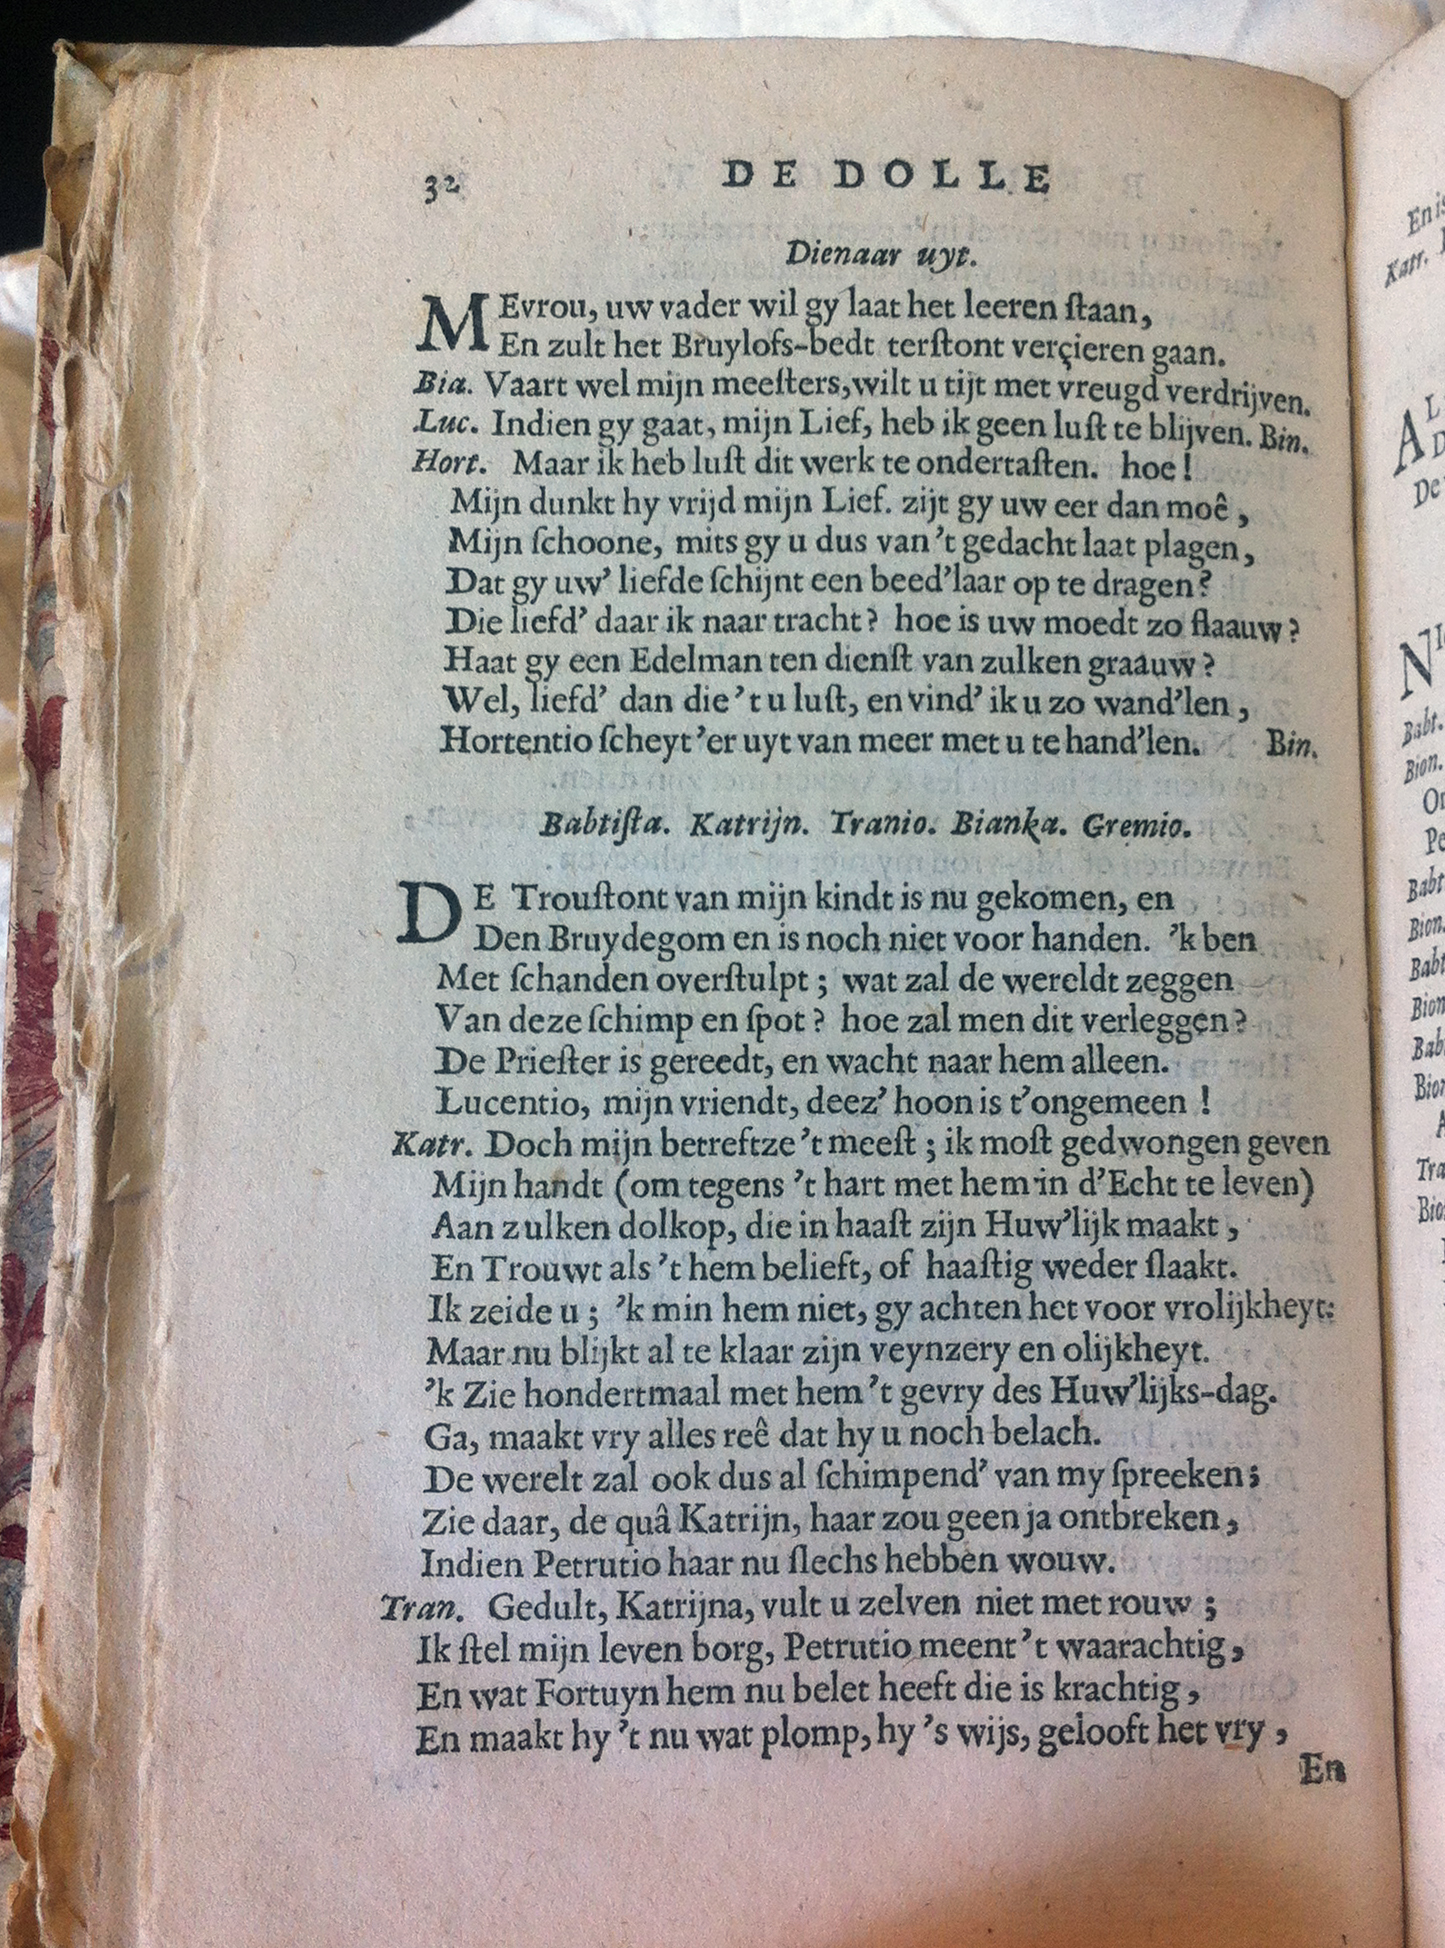 32 DE DOLLE
Dienaar uyt.
MEvrou, uw vader wil gy laat het leeren ſtaan,
En zult het Bruylofs-bedt terſtont verçieren gaan.
Bia. Vaart wel mijn meeſters, wilt u tijt met vreugd verdrijven.
Luc. Indien gy gaat, mijn Lief, heb ik geen luſt te blijven. Bin.
Hort. Maar ik heb luſt dit werk te ondertaſten. hoe!
Mijn dunkt hy vrijd mijn Lief. zijt gy uw eer dan moê,
Mijn ſchoone, mits gy u dus van 't gedacht laat plagen,
Dat gy uw' liefde ſchijnt een beed'laar op te dragen?
Die liefd' daar ik naar tracht? hoe is uw moedt zo ſlaauw?
Haat gy een Edelman ten dienſt van zulken graauw?
Wel, liefd' dan die 't u luſt, en vind' ik u zo wand'len,
Hortentio ſcheyt 'er uyt van meer met u te hand'len. Bin.
Babtiſta. Katrijn. Tranio. Bianka. Gremio.
DE Trouſtont van mijn kindt is nu gekomen, en
Den Bruydegom en is noch niet voor handen. 'k ben
Met ſchanden overſtulpt; wat zal de wereldt zeggen
Van deze ſchimp en ſpot? hoe zal men dit verleggen?
De Prieſter is gereedt, en wacht naar hem alleen.
Lucentio, mijn vriendt, deez' hoon is t'ongemeen!
Katr. Doch mijn betreftze 't meeſt; ik moſt gedwongen geven
Mijn handt (om tegens 't hart met hem in d'Echt te leven)
Aan zulken dolkop, die in haaſt zijn Huw'lijk maakt,
En Trouwt als 't hem belieft, of haaſtig weder ſlaakt.
Ik zeide u; 'k min hem niet, gy achten het voor vrolijkheyt:
Maar nu blijkt al te klaar zijn veynzery en olijkheyt.
'k Zie hondertmaal met hem 't gevry des Huw'lijks-dag.
Ga, maakt vry alles reê dat hy u noch belach.
De werelt zal ook dus al ſchimpend' van my ſpreeken;
Zie daar, de quâ Katrijn, haar zou geen ja ontbreken,
Indien Petrutio haar nu ſlechs hebben wouw.
Tran. Gedult, Katrijna, vult u zelven niet met rouw;
Ik ſtel mijn leven borg, Petrutio meent 't waarachtig,
En wat Fortuyn hem nu belet heeft die is krachtig,
En maakt hy 't nu wat plomp, hy 's wijs, gelooft het vry,
En
Katr.
De
Babt.
Bion.
Babt
Bion.
Babt
Bion
Bab
Bion
Tra
Bio